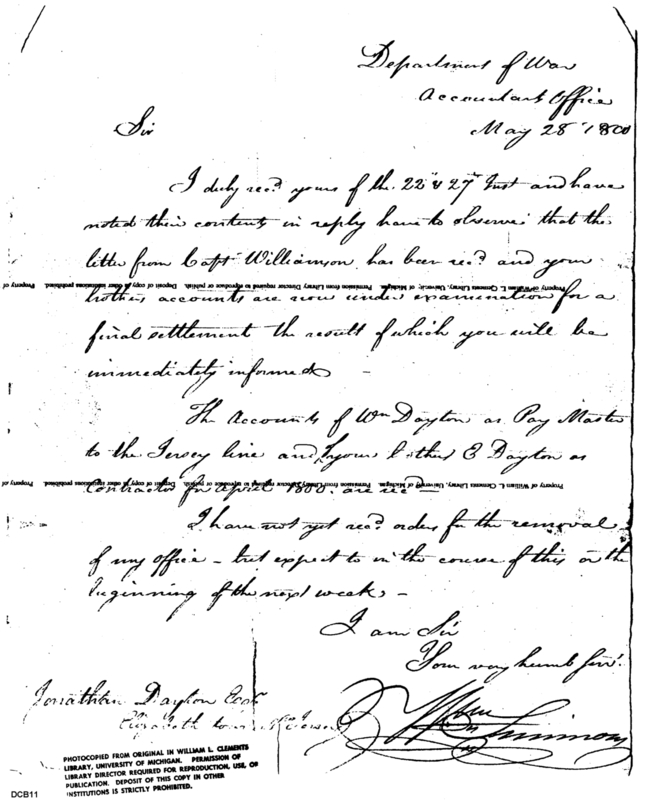 Department of War
Accountants Office
May 28th 1800
Sir
I duly recd. yours of the 22d & 27th Inst and have
noted their contents in reply have to observe that the
letter from Capt Williamson has been recd. and your
brothers accounts are now under examination for a
final settlement the result of which you will be
immediately informed —
The Accounts of Wm Dayton as Pay Master
to the Jersey line and your brother E Dayton as
Contractor for April 1800. are rec —
I have not yet recd. orders for the removal
of my office - but expect to in the course of this or the
beginning of the next week. -
I am Sir
Your very humb Serv.
Wm Simmons
Jonathan Dayton Esqr
Elizabeth town
Property of William L. Clements Library, University of Michigan. Permission from Library Director required to reproduce or publish. Deposit of copy in other institutions prohibited.
Property of
Property of William L. Clements Library, University of Michigan. Permission from Library Director required to reproduce or publish. Deposit of copy in other institutions prohibited.
Property of
PHOTOCOPIED FROM ORIGINAL IN WILLIAM L. CLEMENTS
LIBRARY, UNIVERSITY OF MICHIGAN. PERMISSION OF
LIBRARY DIRECTOR REQUIRED FOR REPRODUCTION, USE, OR
PUBLICATION. DEPOSIT OF THIS COPY IN OTHER
INSTITUTIONS IS STRICTLY PROHIBITED.
DCB11